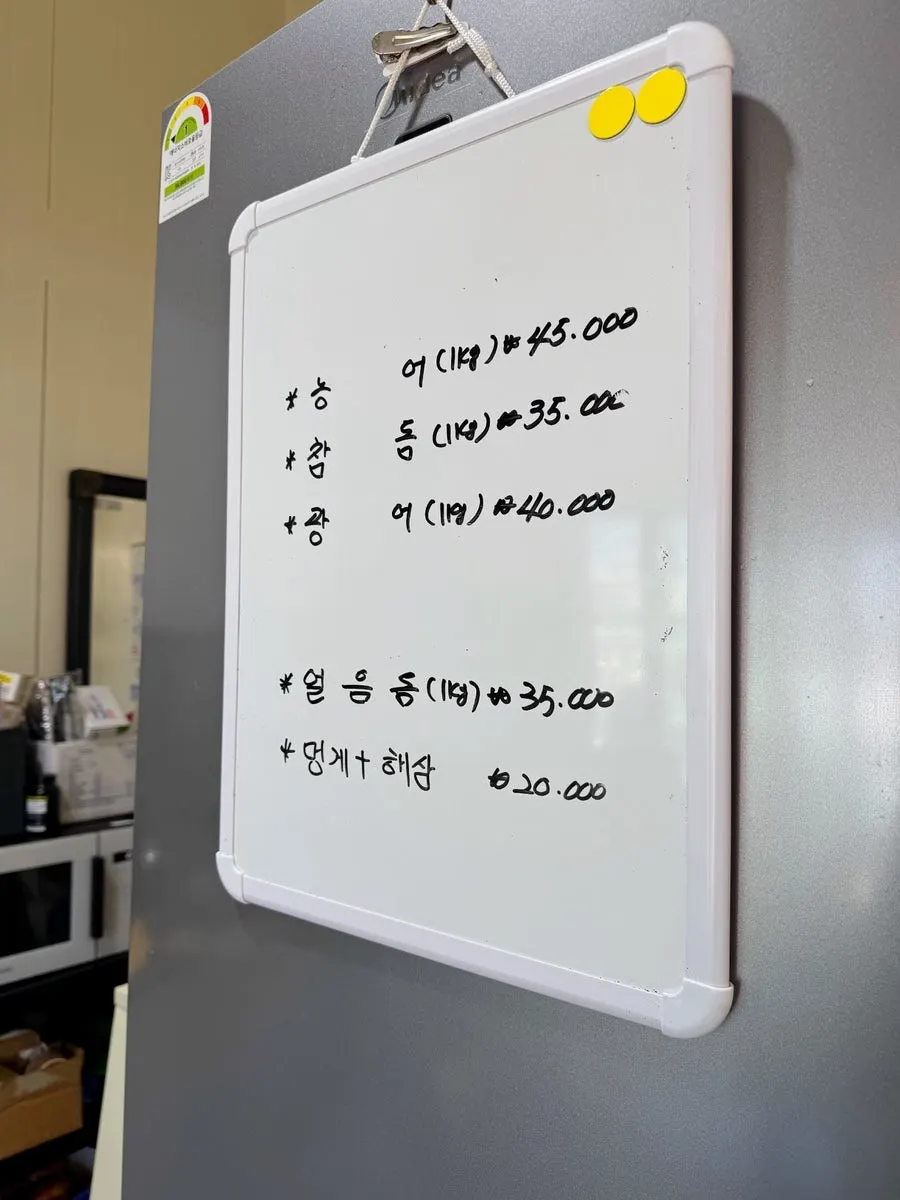 Midea
1
* 농 어 (1kg) ₩45.000
* 참 돔 (1kg) ₩35.000
* 광 어 (1kg) ₩40.000
* 얼 음 돔 (1kg) ₩35.000
* 멍게 + 해삼 ₩20.000